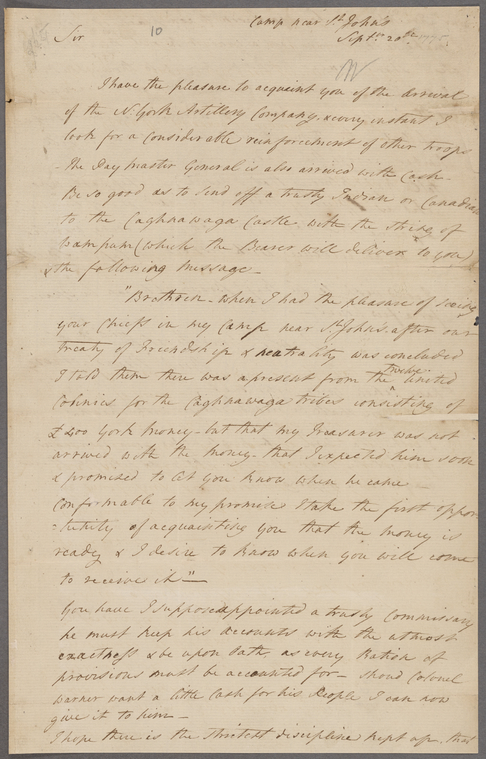 Camp near St. John's
Sir 10 Septr. 20th
I have the pleasure to acquaint you of the arrival
of the N. York Artillery Company, & every instant I
look for a considerable reinforcement of other troops
- the Paymaster General is also arrived with Cash -
Be so good as to send off a trusty Indian or Canadian
to the Caghnawaga Castle, with the string of
wampum (which the Bearer will deliver to you)
& the following message -
"Brethren - when I had the pleasure of seeing
your Chiefs in my Camp near St. Johns, after our
treaty of Friendship & neutrality was concluded
I told them there was a present from the twelve United
Colonies for the Caghnawaga tribes consisting of
£400 York money - but that my Treasurer was not
arrived with the money - that I expected him soon
& promised to let you know when he came -
Conformable to my promise I take the first oppor
-tunity of acquainting you that the money is
ready & I desire to know when you will come
to receive it" -
You have I suppose appointed a trusty Commissary
he must keep his accounts with the utmost
exactness & be upon Oath as every Ration of
provisions must be accounted for - shoud Colonel
Warner want a little Cash for his People I can now
give it to him -
I hope there is the strictest discipline kept up, that